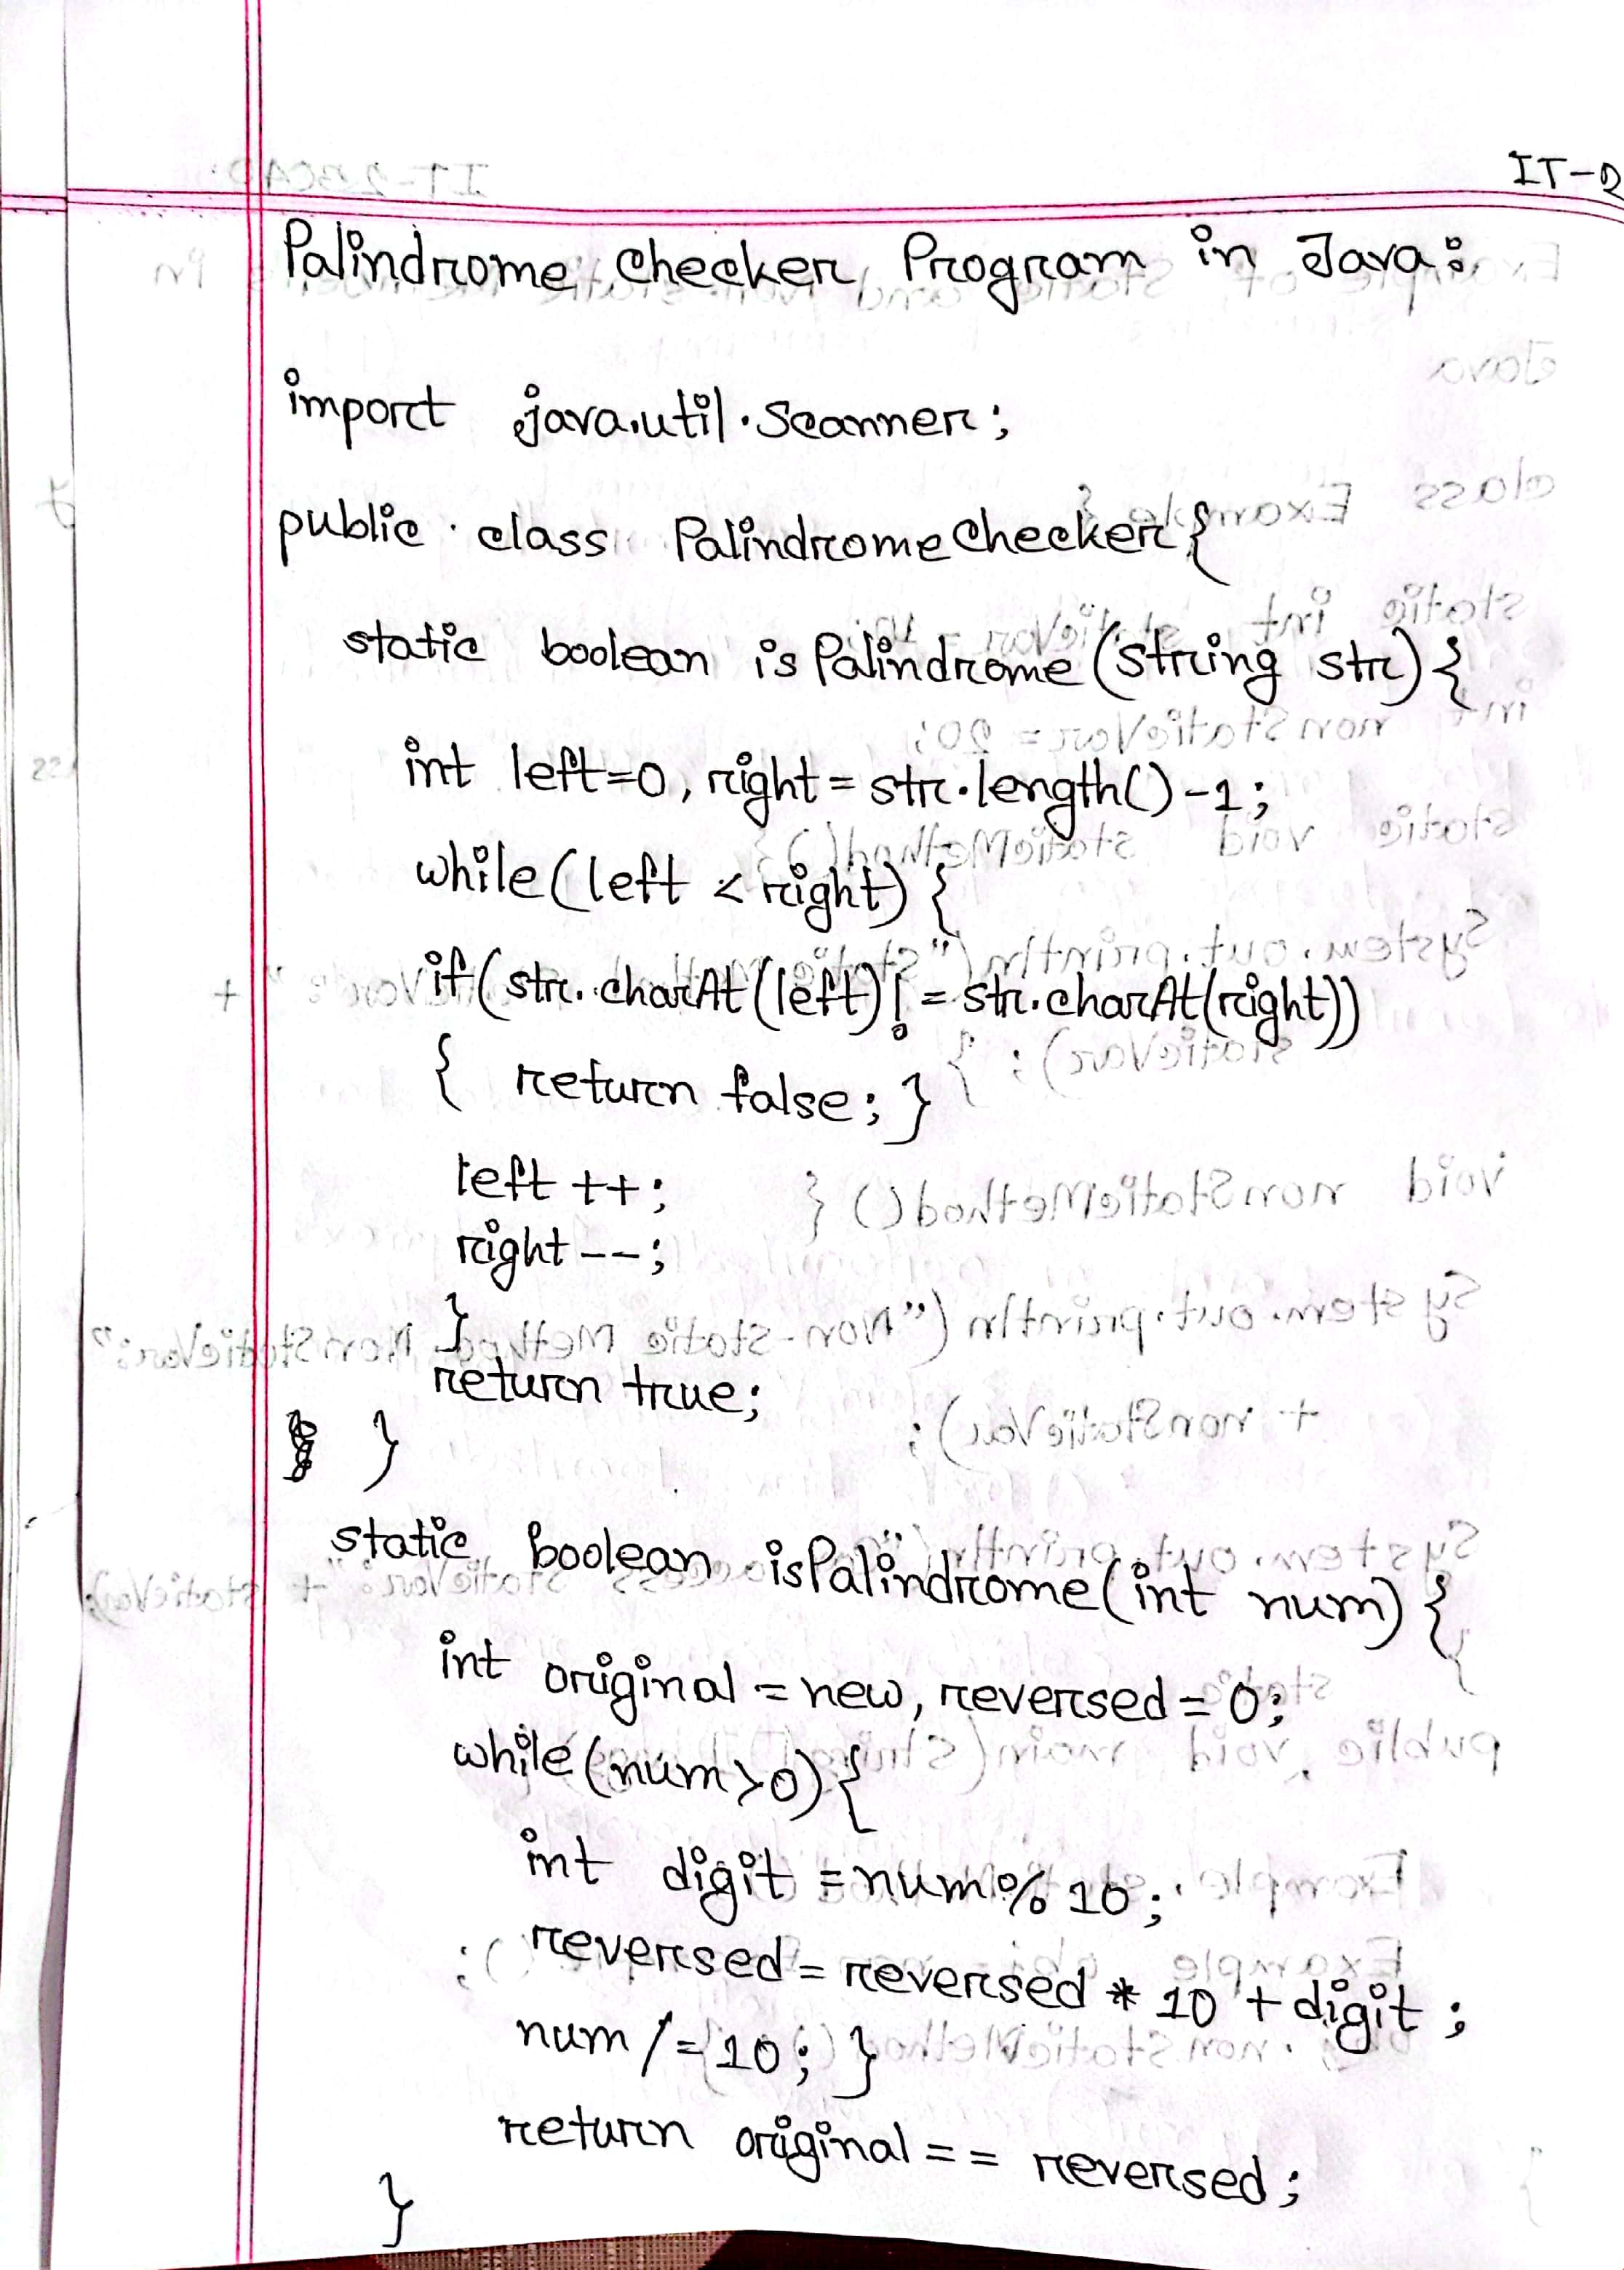 IT-2
Palindrome Checker Program in Java:
import java.util.Scanner;
public class PalindromeChecker{
static boolean isPalindrome(string str){
int left=0, right = str.length()-1;
while(left < right) {
if(str.charAt(left)! = str.charAt(right))
{ return false; }
left ++;
right--;
}
return true;
}
static boolean isPalindrome(int num) {
int original = new, reversed = 0;
while (num>0){
int digit = num % 10;
reversed = reversed * 10 + digit;
num /= 10; }
return original == reversed;
}